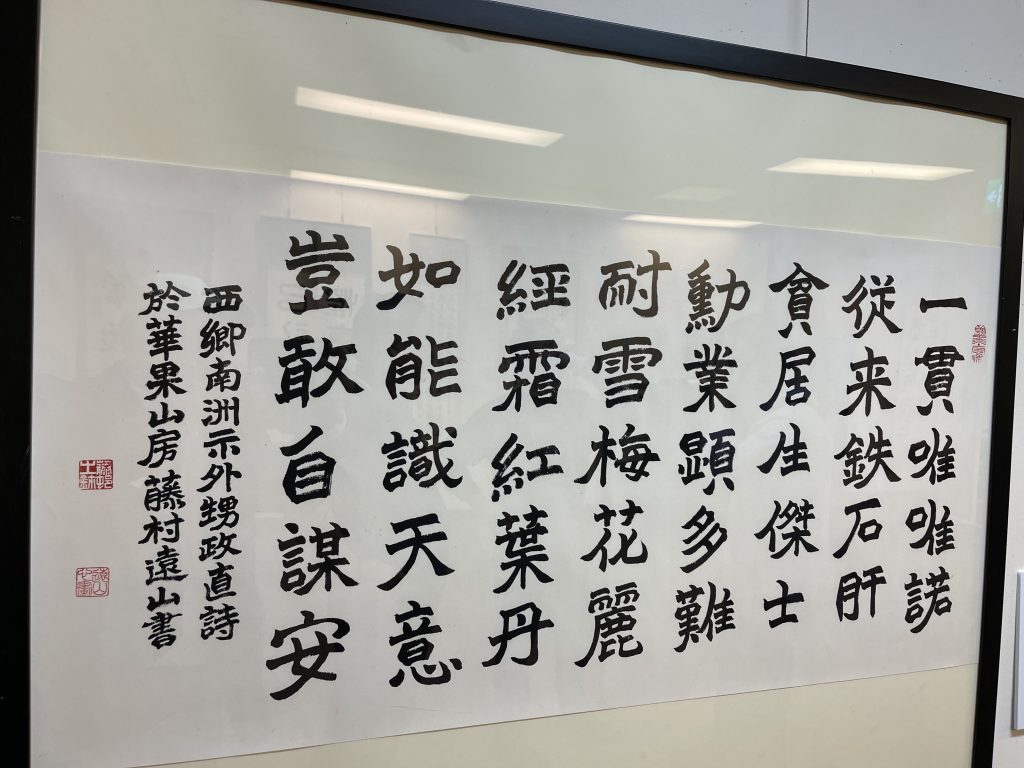 一貫唯唯諾
従来鉄石肝
貧居生傑士
勳業顕多難
耐雪梅花麗
経霜紅葉丹
如能識天意
豈敢自謀安
西郷南洲示外甥政直詩
於華果山房藤村遠山書